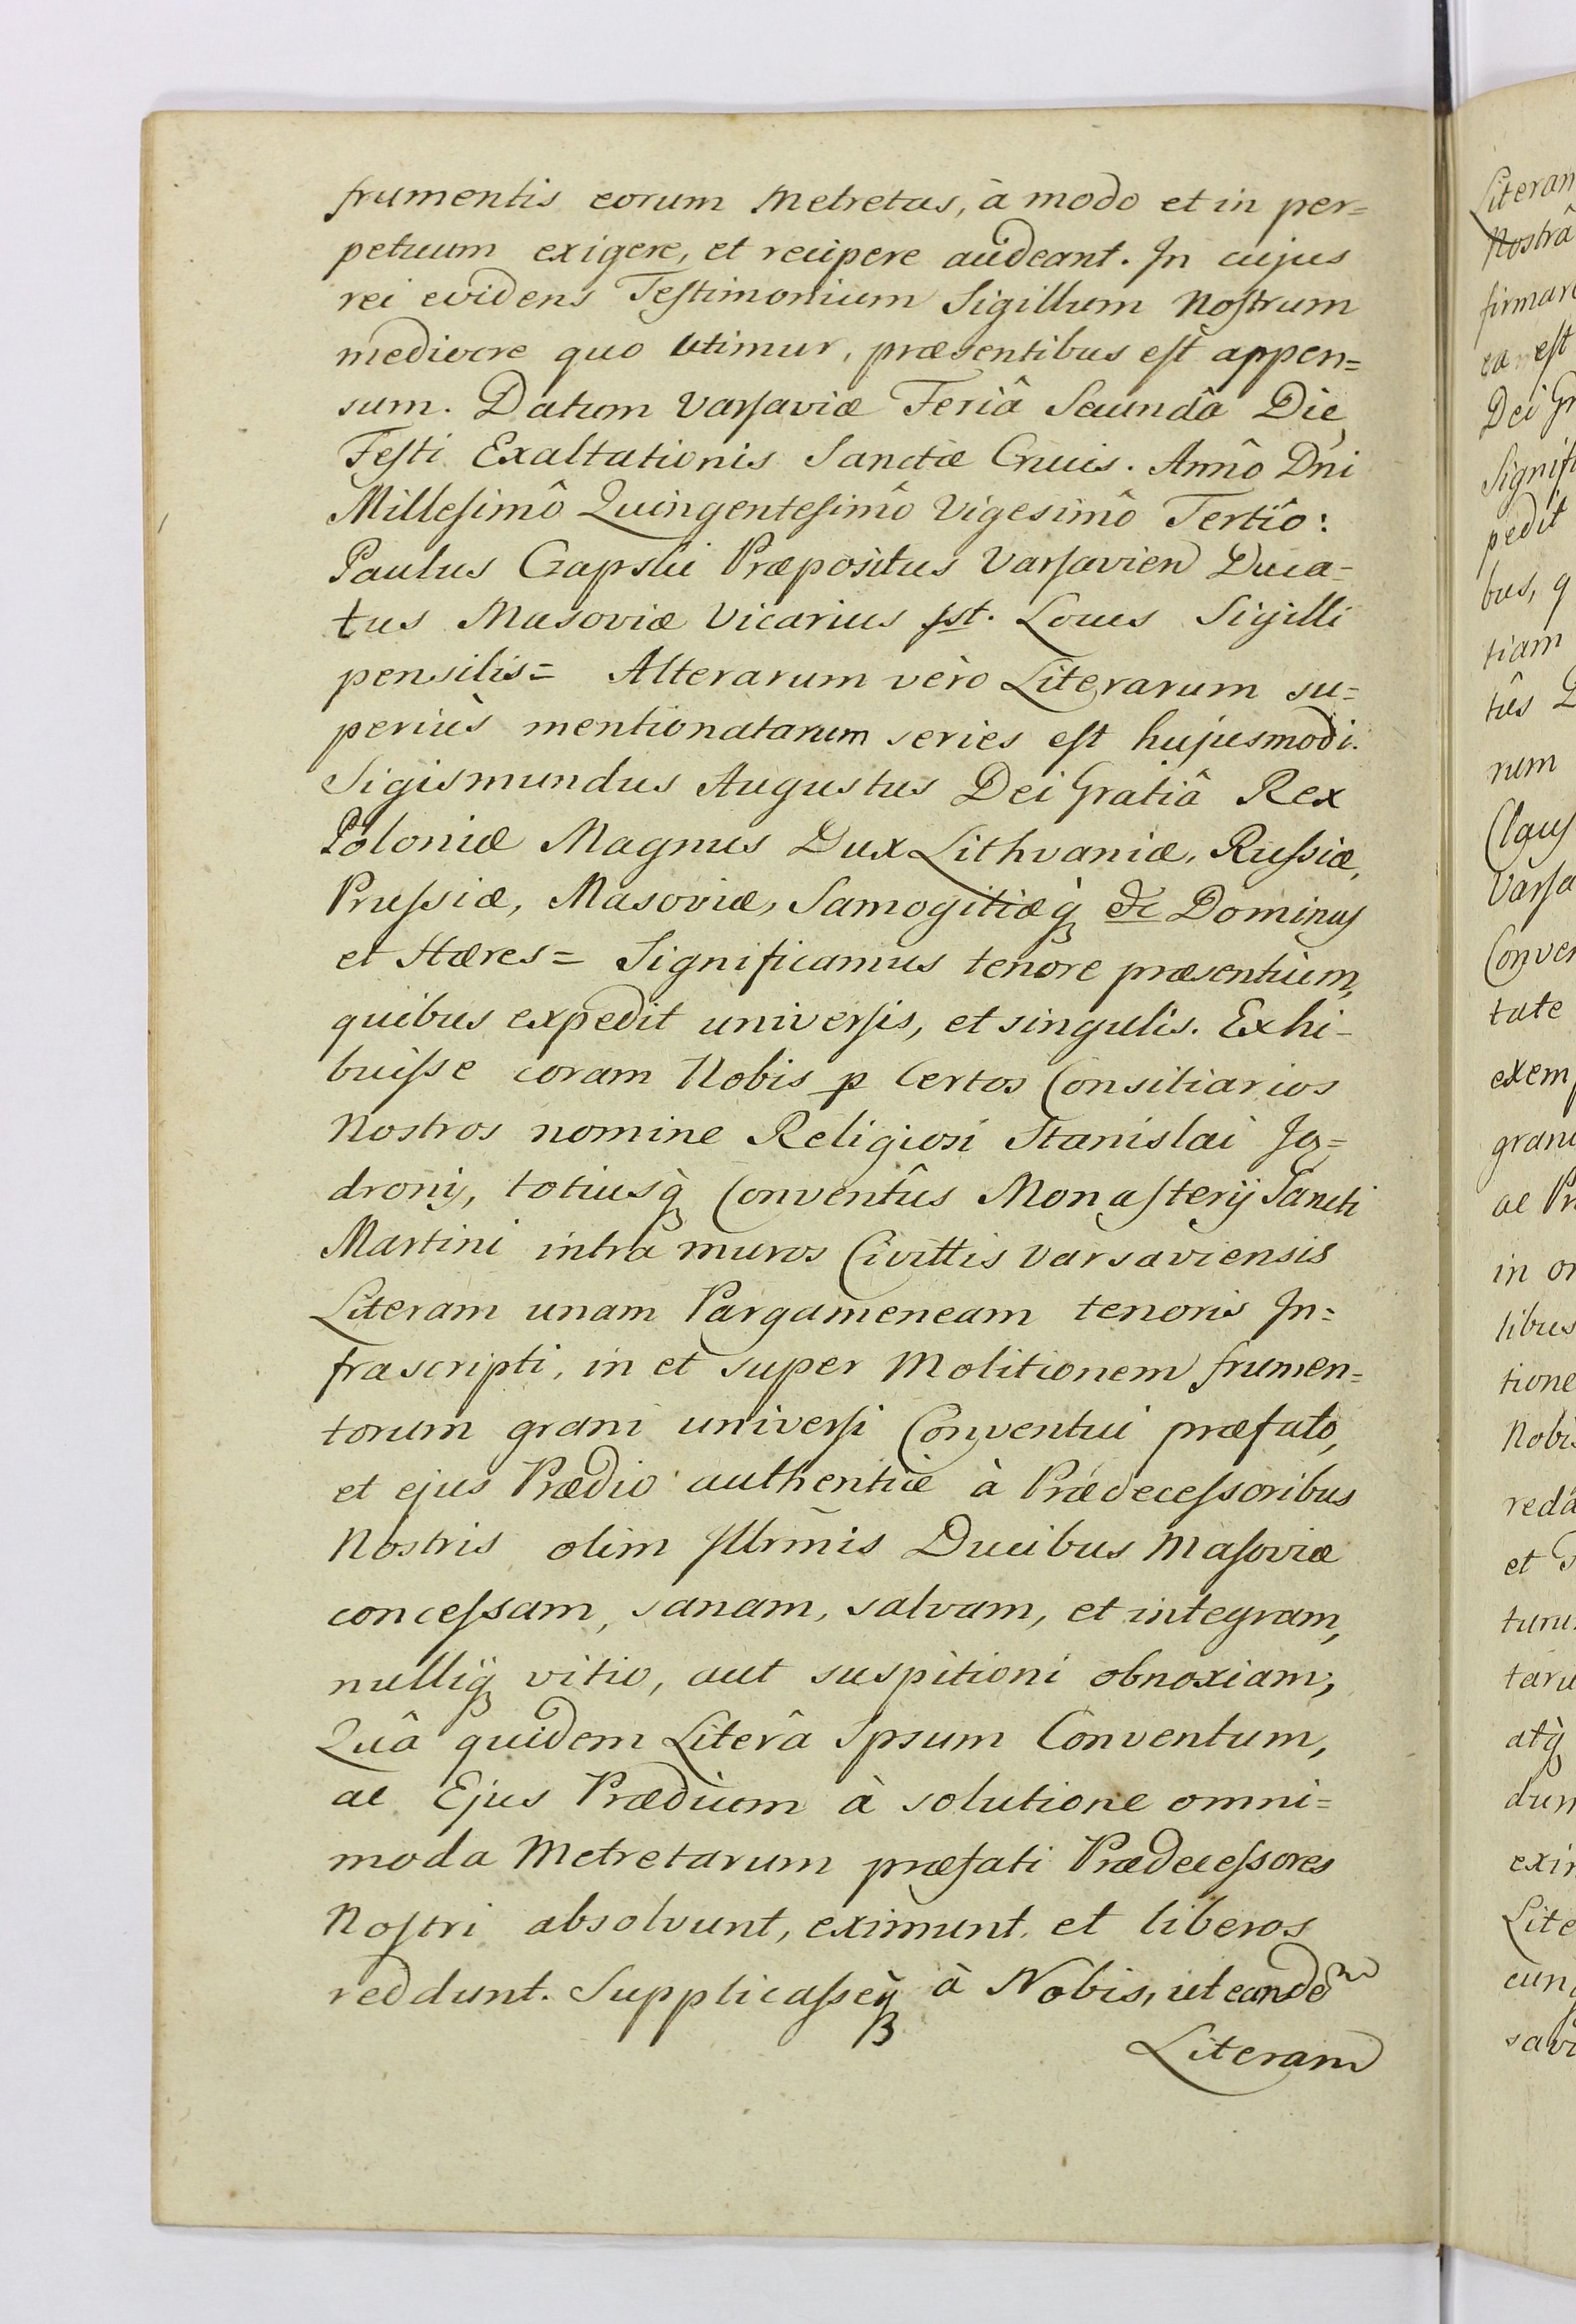 frumentis eorum Metretas, à modo et in per=
petuum exigere, et recipere audeant. In cujus
rei evidens Testimonium Sigillum Nostrum
mediocre quo utimur, præsentibus est appen=
sum. Datum Varsaviæ Feriâ Secundâ Die
Festi Exaltationis Sanctæ Crucis. Annô Dn̄i
Millesimô Quingentesimô Vigesimô Tertiô:
Paulus Czapski Præpositus Varsavien Duca=
tus Masoviæ Vicarius sst. Locus Sigilli
pensilis= Alterarum vèro Literarum su=
periùs mentionatarum series est hujusmodi.
Sigismundus Augustus Dei Gratiâ Rex
Poloniæ Magnus Dux Lithvaniæ, Russiæ,
Prussiæ, Masoviæ, Samogitiæq̀ &c Dominus
et Hæres= Significamus tenore præsentium,
quibus expedit universis, et singulis. Exhi=
buisse coram Nobis p Certos Consiliarios
Nostros nomine Religiosi Stanislai Ja=
dronij, totiusq̀ Conventûs Monasterij Sancti
Martini intra muros Civittis Varsaviensis
Literam unam Pargameneam tenoris In=
frascripti, in et super Molitionem frumen=
torum grani universi Conventui præfato,
et ejus Prædio authenticè à Prædecessoribus
Nostris olim Illrm̄is Ducibus Masoviæ
concessam, sanam, salvam, et integram,
nulliq̀ vitio, aut suspitioni obnoxiam,
Quâ quidem Literâ Ipsum Conventum,
ac Ejus Prædium à solutione omni=
moda Metretarum præfati Prædecessores
Nostri absolvunt, eximunt, et liberos
reddunt. Supplicasseq̀ à Nobis, ut eandem
Literam
Literam
Nostrâ
firmare
ea est
Dei Gr
Signifi
pedit
bus, q
tiam
tûs
rum
Claus
Varsa
Conven
tate
exemp
grani
ac Pr
in or
libus
tione
Nobis
et
atq̀
dum
exim
Lite
savi